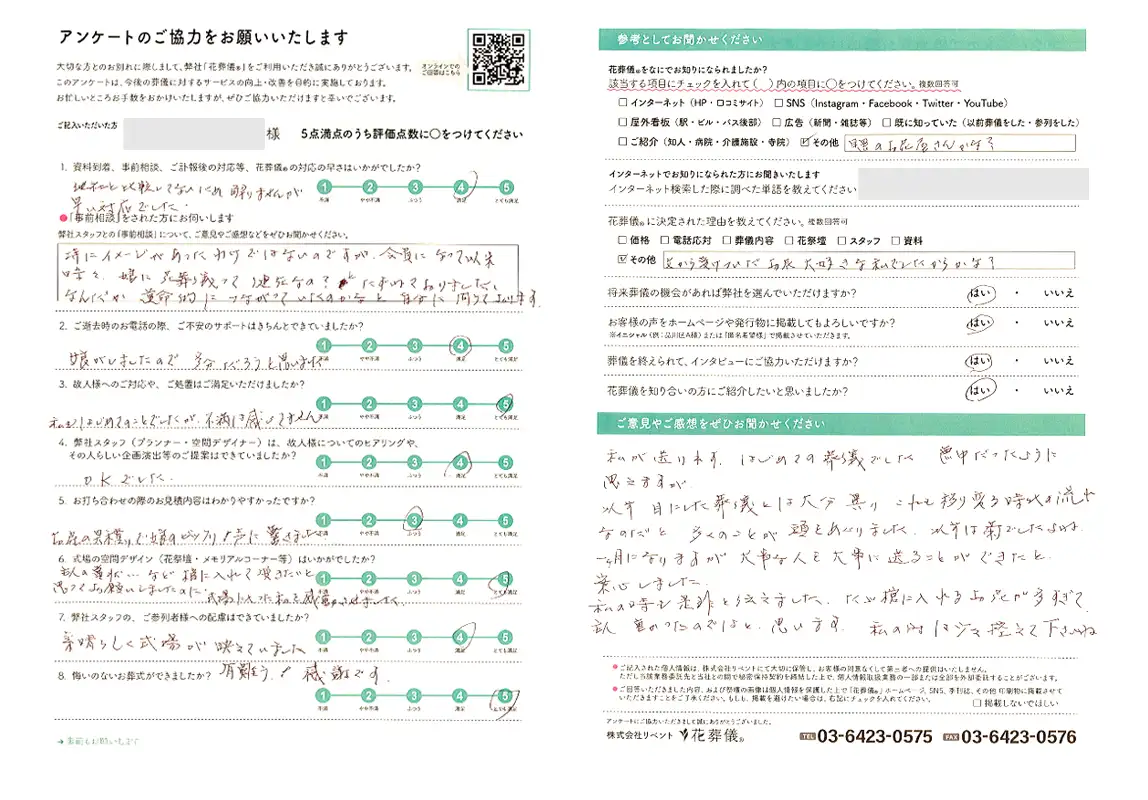 アンケートのご協力をお願いいたします
大切な方とのお別れに際しまして、弊社「花葬儀®」をご利用いただき誠にありがとうございます。
このアンケートは、今後の葬儀に対するサービスの向上・改善を目的に実施しております。
お忙しいところお手数をおかけいたしますが、ぜひご協力いただけますと幸いでございます。
オンラインでの
ご回答はこちら
ご記入いただいた方 様 5点満点のうち評価点数に○をつけてください
1. 資料到着、事前相談、ご訃報後の対応等、花葬儀®の対応の早さはいかがでしたか?
他社と比較してないため解りませんが
早い対応でした。
1 2 3 4 5
不満 やや不満 ふつう 満足 とても満足
●「事前相談」をされた方にお伺いします
弊社スタッフとの「事前相談」について、ご意見やご感想などをぜひお聞かせください。
特にイメージがあったわけではないのですが、会員になって以来
時々、娘に花葬儀って身近なの?とたずねておりました、
なんだか運命的につながっていたのかなと自分に問うております
2. ご逝去時のお電話の際、ご不安のサポートはきちんとできていましたか?
娘がしましたので 多分だろうと思います
1 2 3 4 5
不満 やや不満 ふつう 満足 とても満足
3. 故人様へのご対応や、ご処置はご満足いただけましたか?
私もはじめてのことでしたが、不満は感じてません
1 2 3 4 5
不満 やや不満 ふつう 満足 とても満足
4. 弊社スタッフ(プランナー・空間デザイナー)は、故人様についてのヒアリングや、
その人らしい企画演出等のご提案はできていましたか?
OKでした.
1 2 3 4 5
不満 やや不満 ふつう 満足 とても満足
5. お打ち合わせの際のお見積内容はわかりやすかったですか?
お花の見積りで娘のビックリ声に驚きました
1 2 3 4 5
不満 やや不満 ふつう 満足 とても満足
6. 式場の空間デザイン(花祭壇・メモリアルコーナー等)はいかがでしたか?
など棺に入れて頂きたいと
思ってお願いしましたのに
式場に入った私を感動させました.
1 2 3 4 5
不満 やや不満 ふつう 満足 とても満足
7. 弊社スタッフの、ご参列者様への配慮はできていましたか?
素晴らしく式場が映えていました
1 2 3 4 5
不満 やや不満 ふつう 満足 とても満足
8. 悔いのないお葬式ができましたか?
有難う! 感謝です.
1 2 3 4 5
不満 やや不満 ふつう 満足 とても満足
→裏面もお願いします
参考としてお聞かせください
花葬儀®をなにでお知りになられましたか?
該当する項目にチェックを入れて( )内の項目に○をつけてください。複数回答可
□インターネット(HP・口コミサイト) □SNS(Instagram・Facebook・Twitter・YouTube)
□屋外看板(駅・ビル・バス後部) □広告(新聞・雑誌等) □既に知っていた(以前葬儀をした・参列をした)
□ご紹介(知人・病院・介護施設・寺院) ☑その他 のお花屋さんかな?
インターネットでお知りになられた方にお聞きいたします
インターネット検索した際に調べた単語を教えてください
花葬儀®に決定された理由を教えてください。複数回答可
□価格 □電話応対 □葬儀内容 □花祭壇 □スタッフ □資料
☑その他 から受けついだお花大好きな私でしたからかな?
将来葬儀の機会があれば弊社を選んでいただけますか? はい ・ いいえ
お客様の声をホームページや発行物に掲載してもよろしいですか? はい ・ いいえ
※イニシャル(例:品川区A様)または「匿名希望様」で掲載させていただきます。
葬儀を終えられて、インタビューにご協力いただけますか? はい ・ いいえ
花葬儀を知り合いの方にご紹介したいと思いましたか? はい ・ いいえ
ご意見やご感想をぜひお聞かせください
私が送ります、はじめての葬儀でした 夢中だったように
思えますが
以前目にした葬儀とは大分異り これも移り変る時代の流れ
なのだと 多くのことが 頭をめぐりました、以前は菊でしたよね.
一ヶ月になりますが 大事な人を大事に送ることができたと、
安心しました.
私の時も是非と伝えました、ただ棺に入れるお花が多すぎて
重かったのではと、思います. 私の時は少々控えて下さいね
●ご記入された個人情報は、株式会社リベントにて大切に保管し、お客様の同意なくして第三者への提供はいたしません。
ただし当該業務委託先と当社との間で秘密保持契約を締結した上で、個人情報取扱業務の一部または全部を外部委託することがございます。
●ご回答いただきました内容、および祭壇の画像は個人情報を保護した上で「花葬儀®」ホームページ、SNS、季刊誌、その他印刷物に掲載させて
いただきますことをご了承ください。もしも、掲載を避けたい場合は、右記にチェックを入れてください。 □掲載しないでほしい
アンケートにご協力いただきまして誠にありがとうございました。
株式会社リベント 花葬儀® TEL 03-6423-0575 FAX 03-6423-0576